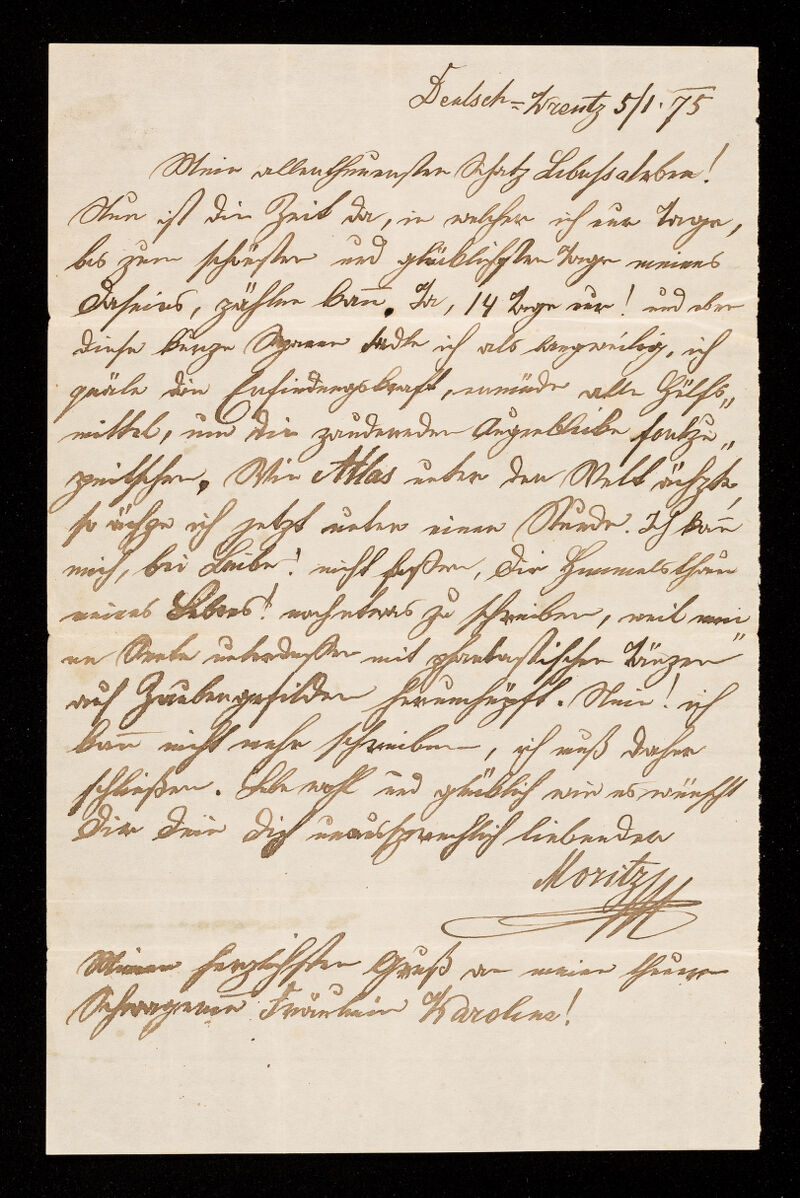 Deutsch=Kreutz 5/1. 75
Mein allertheuerster Schatz Lebensleben!
Nun ist die Zeit da, in welcher ich nur Tage,
bis zum schönsten und glücklichsten Tage meines
Daseins, zählen kann. Ja, 14 Tage nur! und aber
diese kurze Spanne tadle ich als langweilig, ich
quäle die Erfindungskraft, ermüde alle Hülfs„
mittel, um die zaudernden Augenblicke fortzu„
peitschen. Wie Atlas unter der Welt ächzte,
so ächze ich jetzt unter einer Stunde. Ich kann
mich, bei Liebe! nicht fassen, Dir Himmelsthau
meines Lebens! noch etwas zu schreiben, weil mei
ne Seele unterdessen mit phantastischen Tänzen
auf Zaubergefilden herumhüpft. Nein! ich
kann nicht mehr schreiben, ich muß daher
schließen. Lebe wohl und glücklich wie es wünscht
Dir Dein Dich unaussprechlich liebender
Moritz
Meinen herzlichsten Gruß an meine theure
Schwägerinn Fräulein Karoline!